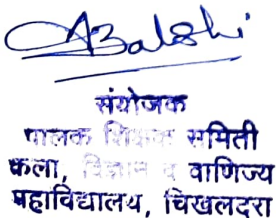 संयोजक
पालक शिक्षक समिती
कला, विज्ञान व वाणिज्य
महाविद्यालय, चिखलदरा